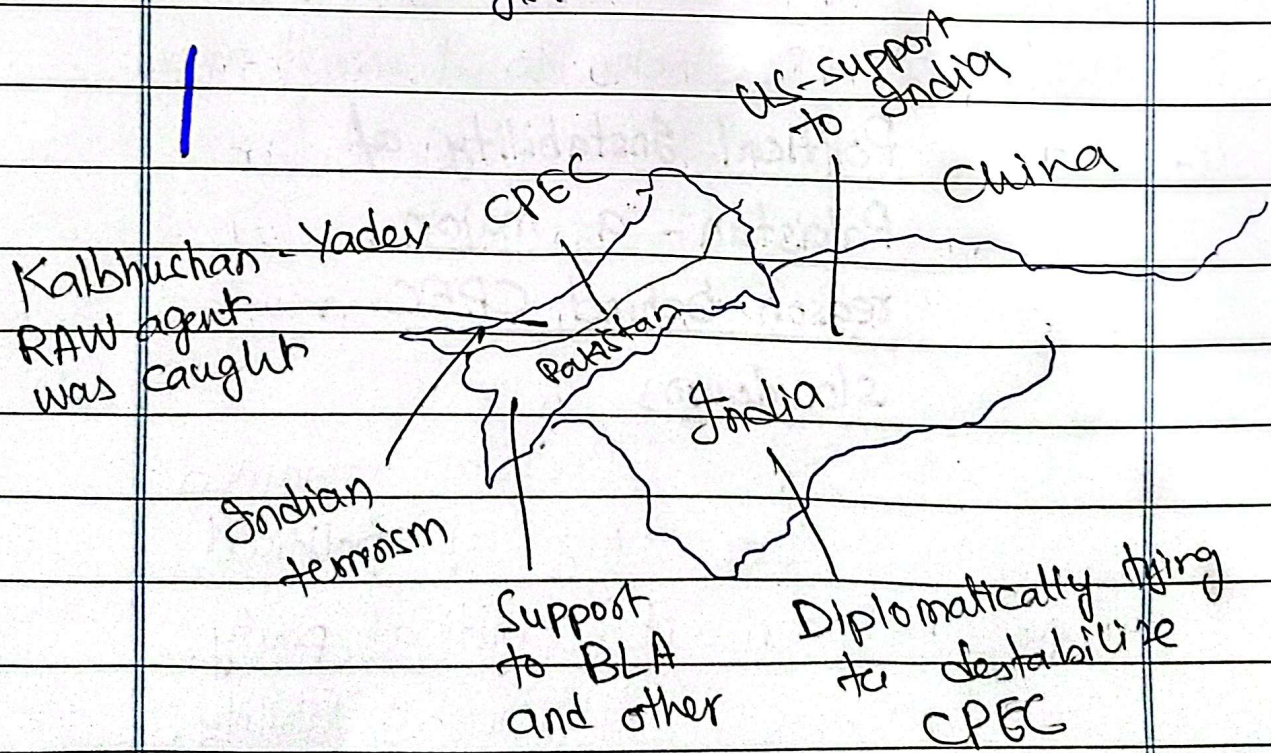 US-support
to India
China
CPEC
Kalbhuchan - Yadev
RAW agent
was caught
Pakistan
India
Indian
terrorism
Support
to BLA
and other
Diplomatically tying
to destabilize
CPEC